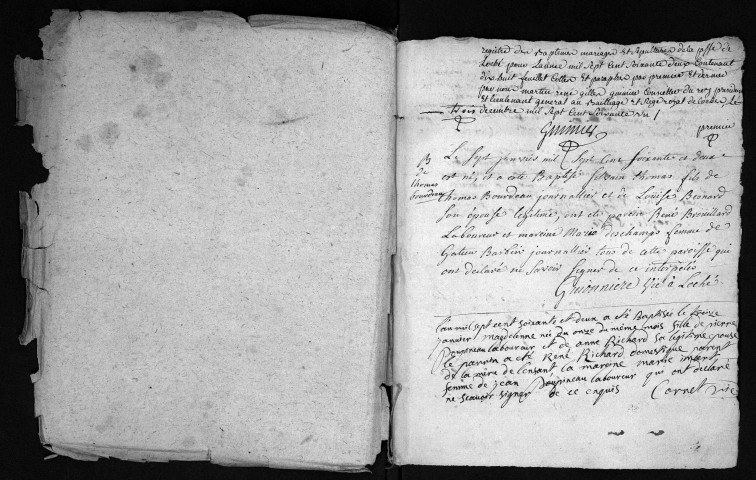 registre des baptemes mariages et sepultures de la psse de
Loché pour lannee mil Sept Cent Soixante deux Contenant
dix huit feuillet Cottes et paraphes par premier et dernier
par nous martin rené gilles Conseiller du roy president
et lieutenant general au bailliage et siege royal de Loches Le
trois decembre mil Sept Cent Soixante un
premier
B de thomas bourdeau
Le Sept janvier mil Sept Cent soixante et deux
est né et a eté Baptisé Silvain thomas fils de
thomas Bourdeau journallier et de Louise Besnard
Son épouse legitime, ont eté parein René Brouillard
Laboureur et mareine Marie deschamps femme de
Gatien Barbier journallier tous de cette paroisse qui
ont declaré ne savoir signer de ce interpelés
Guionniere vic à Loché
L'an mil sept cent soixante et deux a eté Baptisée le treize
janvier magdelenne née du onze du même mois fille de pierre
Doupineau laboureur et de anne Richard sa legitime epouse
le parein a eté René Richard domestique parent
de la mère de l'ensant la mareine marie
femme de jean Doupineau laboureur qui ont declaré
ne scavoir signer de ce enquis Cornet